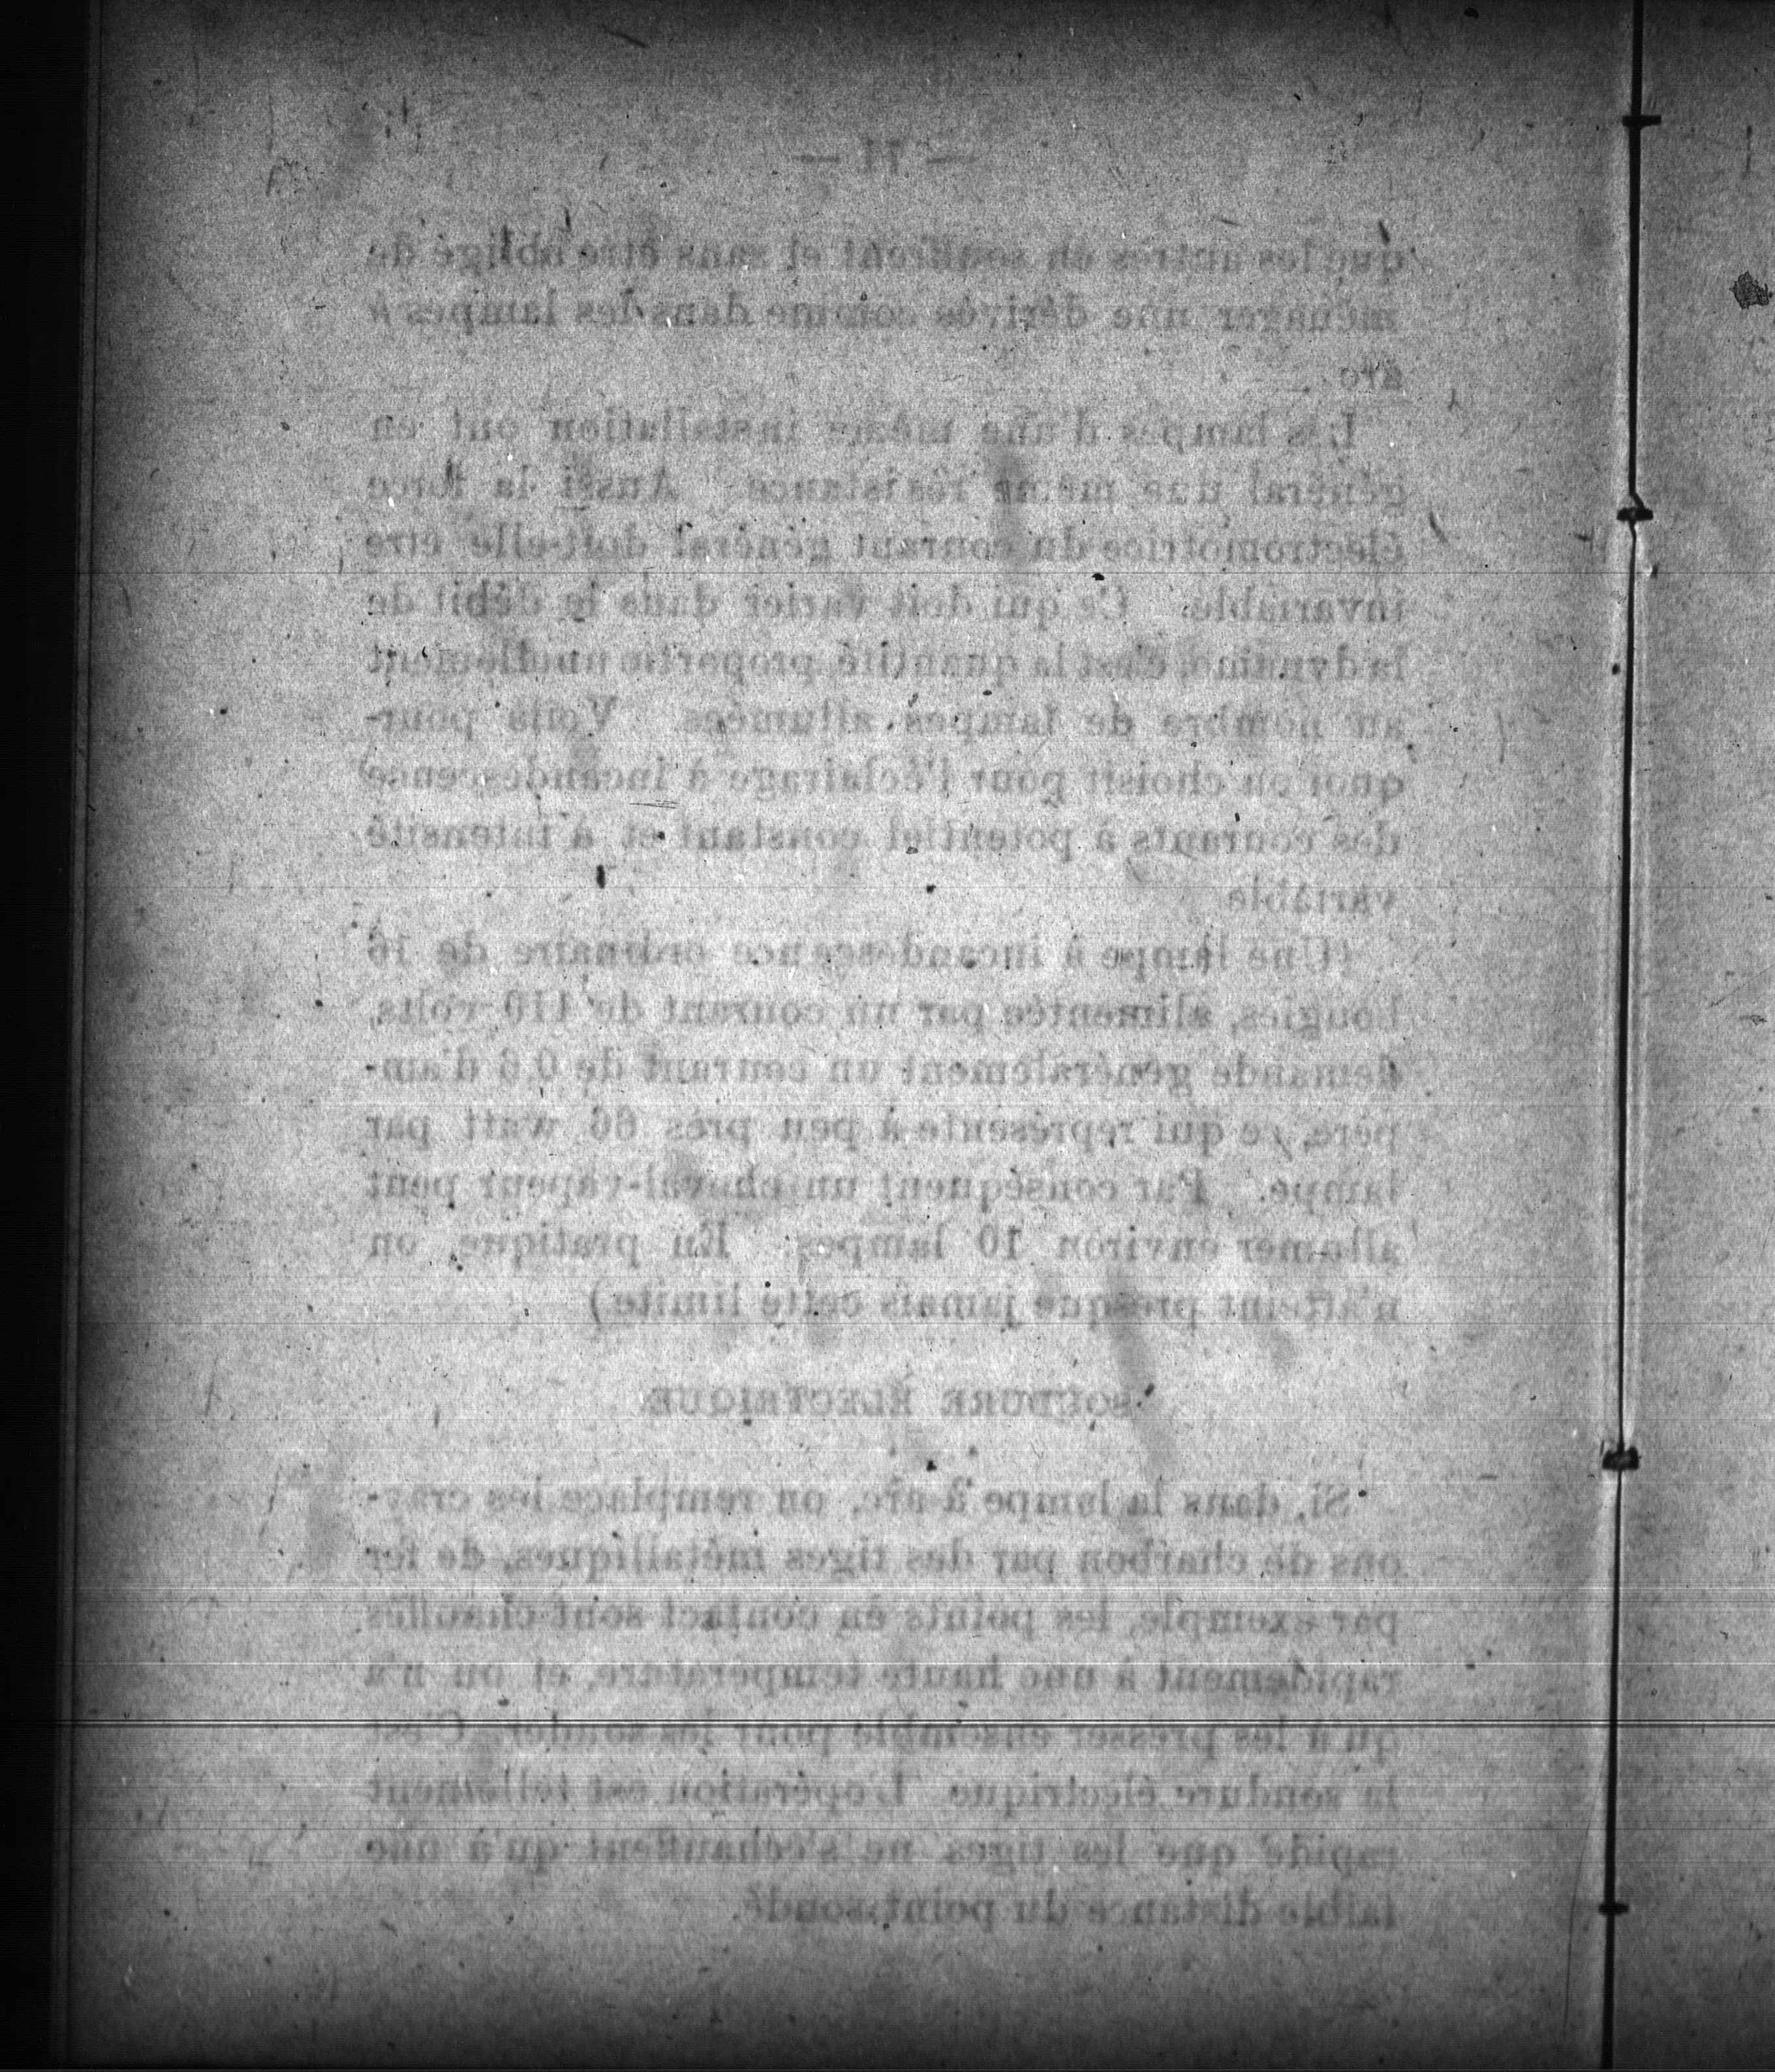 — 71 —
que les autres en souffrent et sans être obligé de
ménager une dérivée comme dans les lampes à
arc.
Les lampes d'une même installation ont en
général une même résistance. Aussi la force
électromotrice du courant général doit-elle être
invariable. Ce qui doit varier dans le débit de
la dynamo, c'est la quantité proportionnellement
au nombre de lampes allumées. Voilà pour-
quoi on choisit pour l'éclairage à incandescence
des courants à potentiel constant et à intensité
variable
(Une lampe à incandescence ordinaire de 16
bougies, alimentée par un courant de 110 volts,
demande généralement un courant de 0,6 d'am-
père, ce qui représente à peu près 66 watt par
lampe. Par conséquent un cheval-vapeur peut
allumer environ 10 lampes. En pratique, on
n'atteint presque jamais cette limite)
SOUDURE ÉLECTRIQUE
Si, dans la lampe à arc, on remplace les cray-
ons de charbon par des tiges métalliques, de fer
par exemple, les points en contact sont chauffés
rapidement à une haute température, et on n'a
qu'à les presser ensemble pour les souder. C'est
la soudure électrique. L'opération est tellement
rapide que les tiges ne s'échauffent qu'à une
faible distance du point soudé.